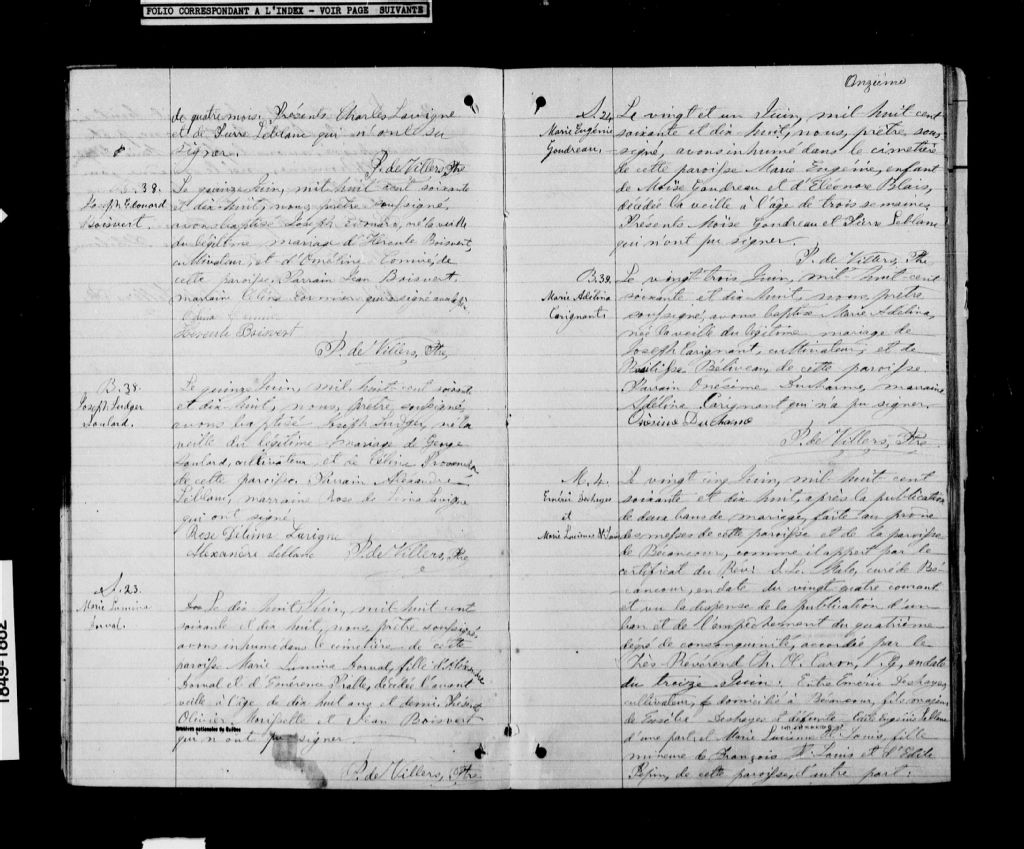 FOLIO CORRESPONDANT A L'INDEX - VOIR PAGE SUIVANTE
de quatre mois. Présents Charles Lavigne
et de Pierre Leblanc qui n'ont su
signer.
P. de Villers, Ptre
B. 38.
Joseph Edouard
Boisvert.
Le quinze Juin, mil huit cent soixante
et dix huit, nous, prêtre soussigné,
avons baptisé Joseph Edouard, né la veille
du légitime mariage d'Hercule Boisvert,
cultivateur, et d'Oméline de
cette paroisse. Parrain Jean Boisvert,
marraine qui a signé avec
Hercule Boisvert
P. de Villers, Ptre
B. 38.
Joseph Ludger
Soulard.
Le quinze Juin, mil huit cent soixante
et dix huit, nous, prêtre soussigné,
avons baptisé Joseph Ludger, né la
veille du légitime mariage de George
Soulard, cultivateur, et de Céline Provencher
de cette paroisse. Parrain Alexandre
Leblanc, marraine Rose de Lima Lavigne
qui ont signé.
Rose Délima Lavigne
Alexandre
P. de Villers, Ptre
S. 23.
Marie Lumina
Dorval.
Le dix huit Juin, mil huit cent
soixante et dix huit, nous, prêtre soussigné,
avons inhumé dans le cimetière de cette
paroisse Marie Lumina Dorval, fille d'
Dorval et d'Honérence décédée l'avant
veille à l'âge de dix huit ans et demi. Présents
Olivier et Jean Boisvert
qui n'ont pu signer
Archives nationales du Québec
P. de Villers, Ptre
Onzième
S. 24.
Marie Eugénie
Goudreau.
Le vingt et un Juin, mil huit cent
soixante et dix huit, nous, prêtre sous-
signé, avons inhumé dans le cimetière
de cette paroisse Marie Eugénie, enfant
de Moïse Goudreau et d'Eléonore Blais,
décédée la veille à l'âge de trois semaines.
Présents Moïse Goudreau et Pierre Leblanc
qui n'ont pu signer.
P. de Villers, Ptre
B. 39.
Marie Adélina
Carignant.
Le vingt trois Juin, mil huit cent
soixante et dix huit, nous, prêtre
soussigné, avons baptisé Marie Adélina,
née la veille du légitime mariage de
Joseph Carignant, cultivateur, et de
Béliveau, de cette paroisse.
Parrain Onésime Ducharme, marraine
Adélina Carignant qui n'a pu signer.
Onésime Ducharme
P. de Villers, Ptre
M. 4.
Eméri Deshayes
et
Marie Lucienne St Louis
Le vingt cinq Juin, mil huit cent
soixante et dix huit, après la publication
de deux bans de mariage, faite au prône
des messes de cette paroisse et de la paroisse
de Bécancour, comme il appert par le
certificat du Rév: curé de Bé-
cancour, en date du vingt quatre courant
et vu la dispense de la publication d'un
ban et de l'empêchement du quatrième
dégré de consanguinité, accordée par le
Très-Révérend Ch. O. Caron, V. G., en date
du treize Juin: Entre Eméri Deshayes,
cultivateur, domicilié à Bécancour, fils majeur
de Eusèbe Deshayes et défunte Leblanc
d'une part, et Marie Lucienne St. Louis, fille
mineure de François St. Louis et d'Edile
Pepin, de cette paroisse, d'autre part:
1849-1882